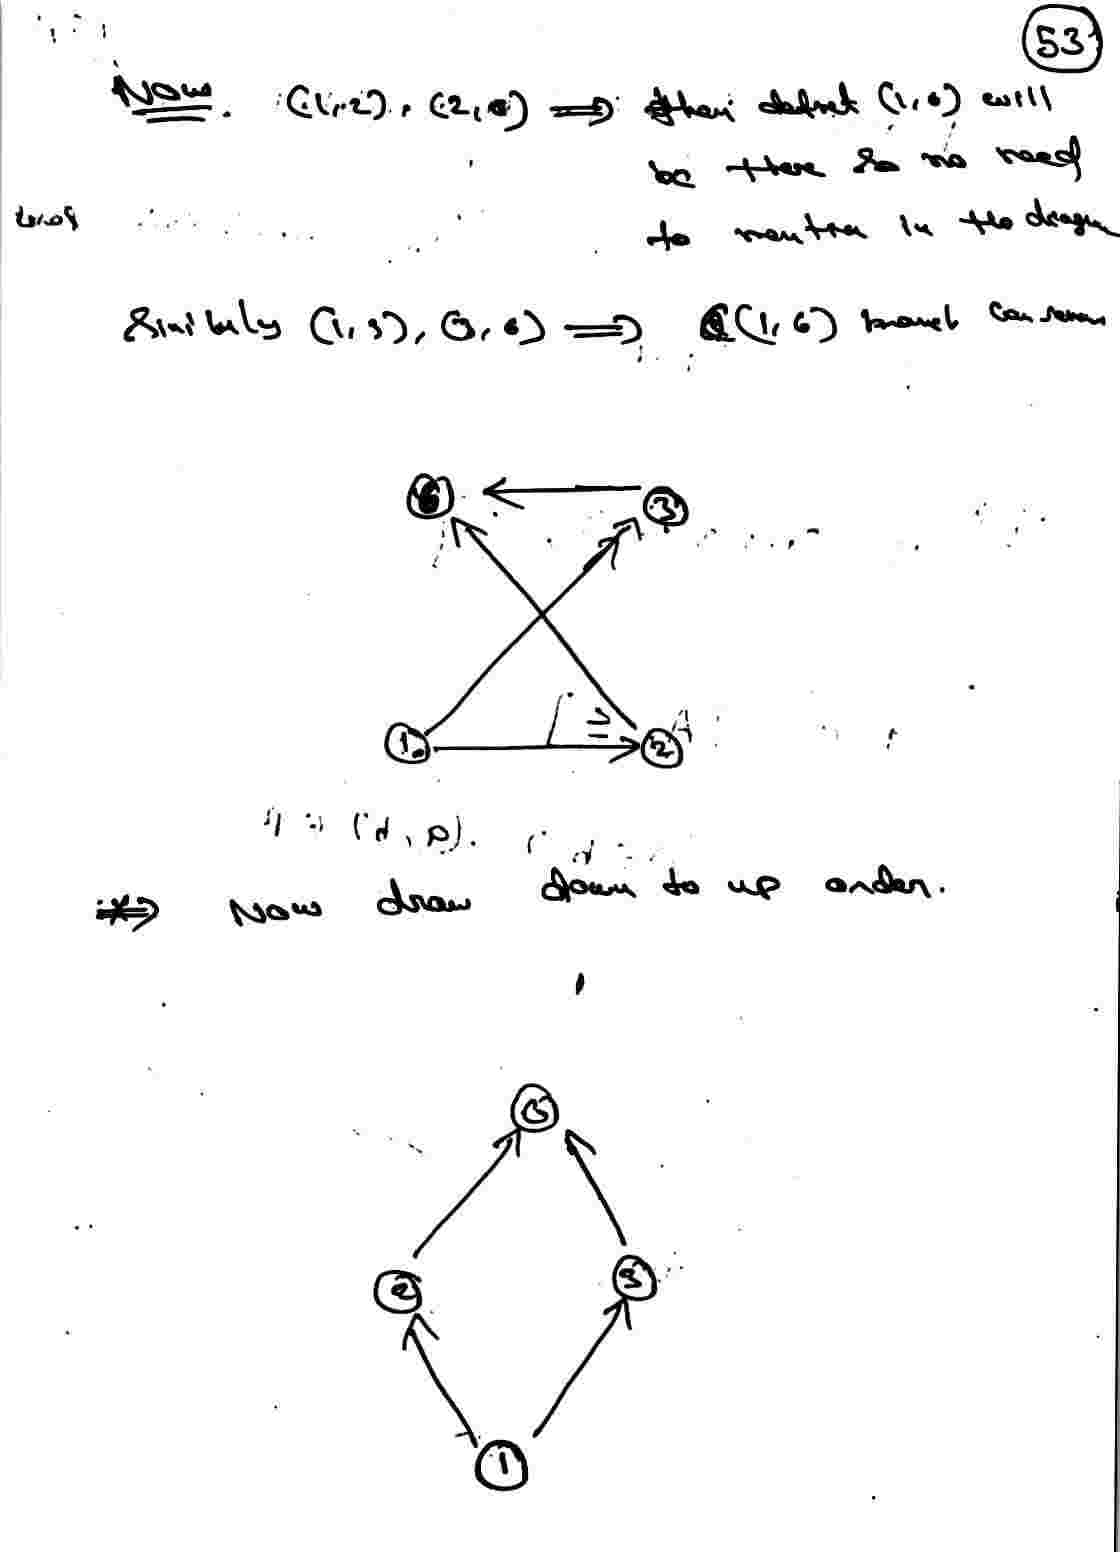 53
Now. (1,2), (2,6) ⟹ then defnet (1,6) will
be there so no need
to mention in the diagram
Similarly (1,3), (3,6) ⟹ (1,6)
6 3
1 2
⟹ Now draw down to up order.
6
2 3
1